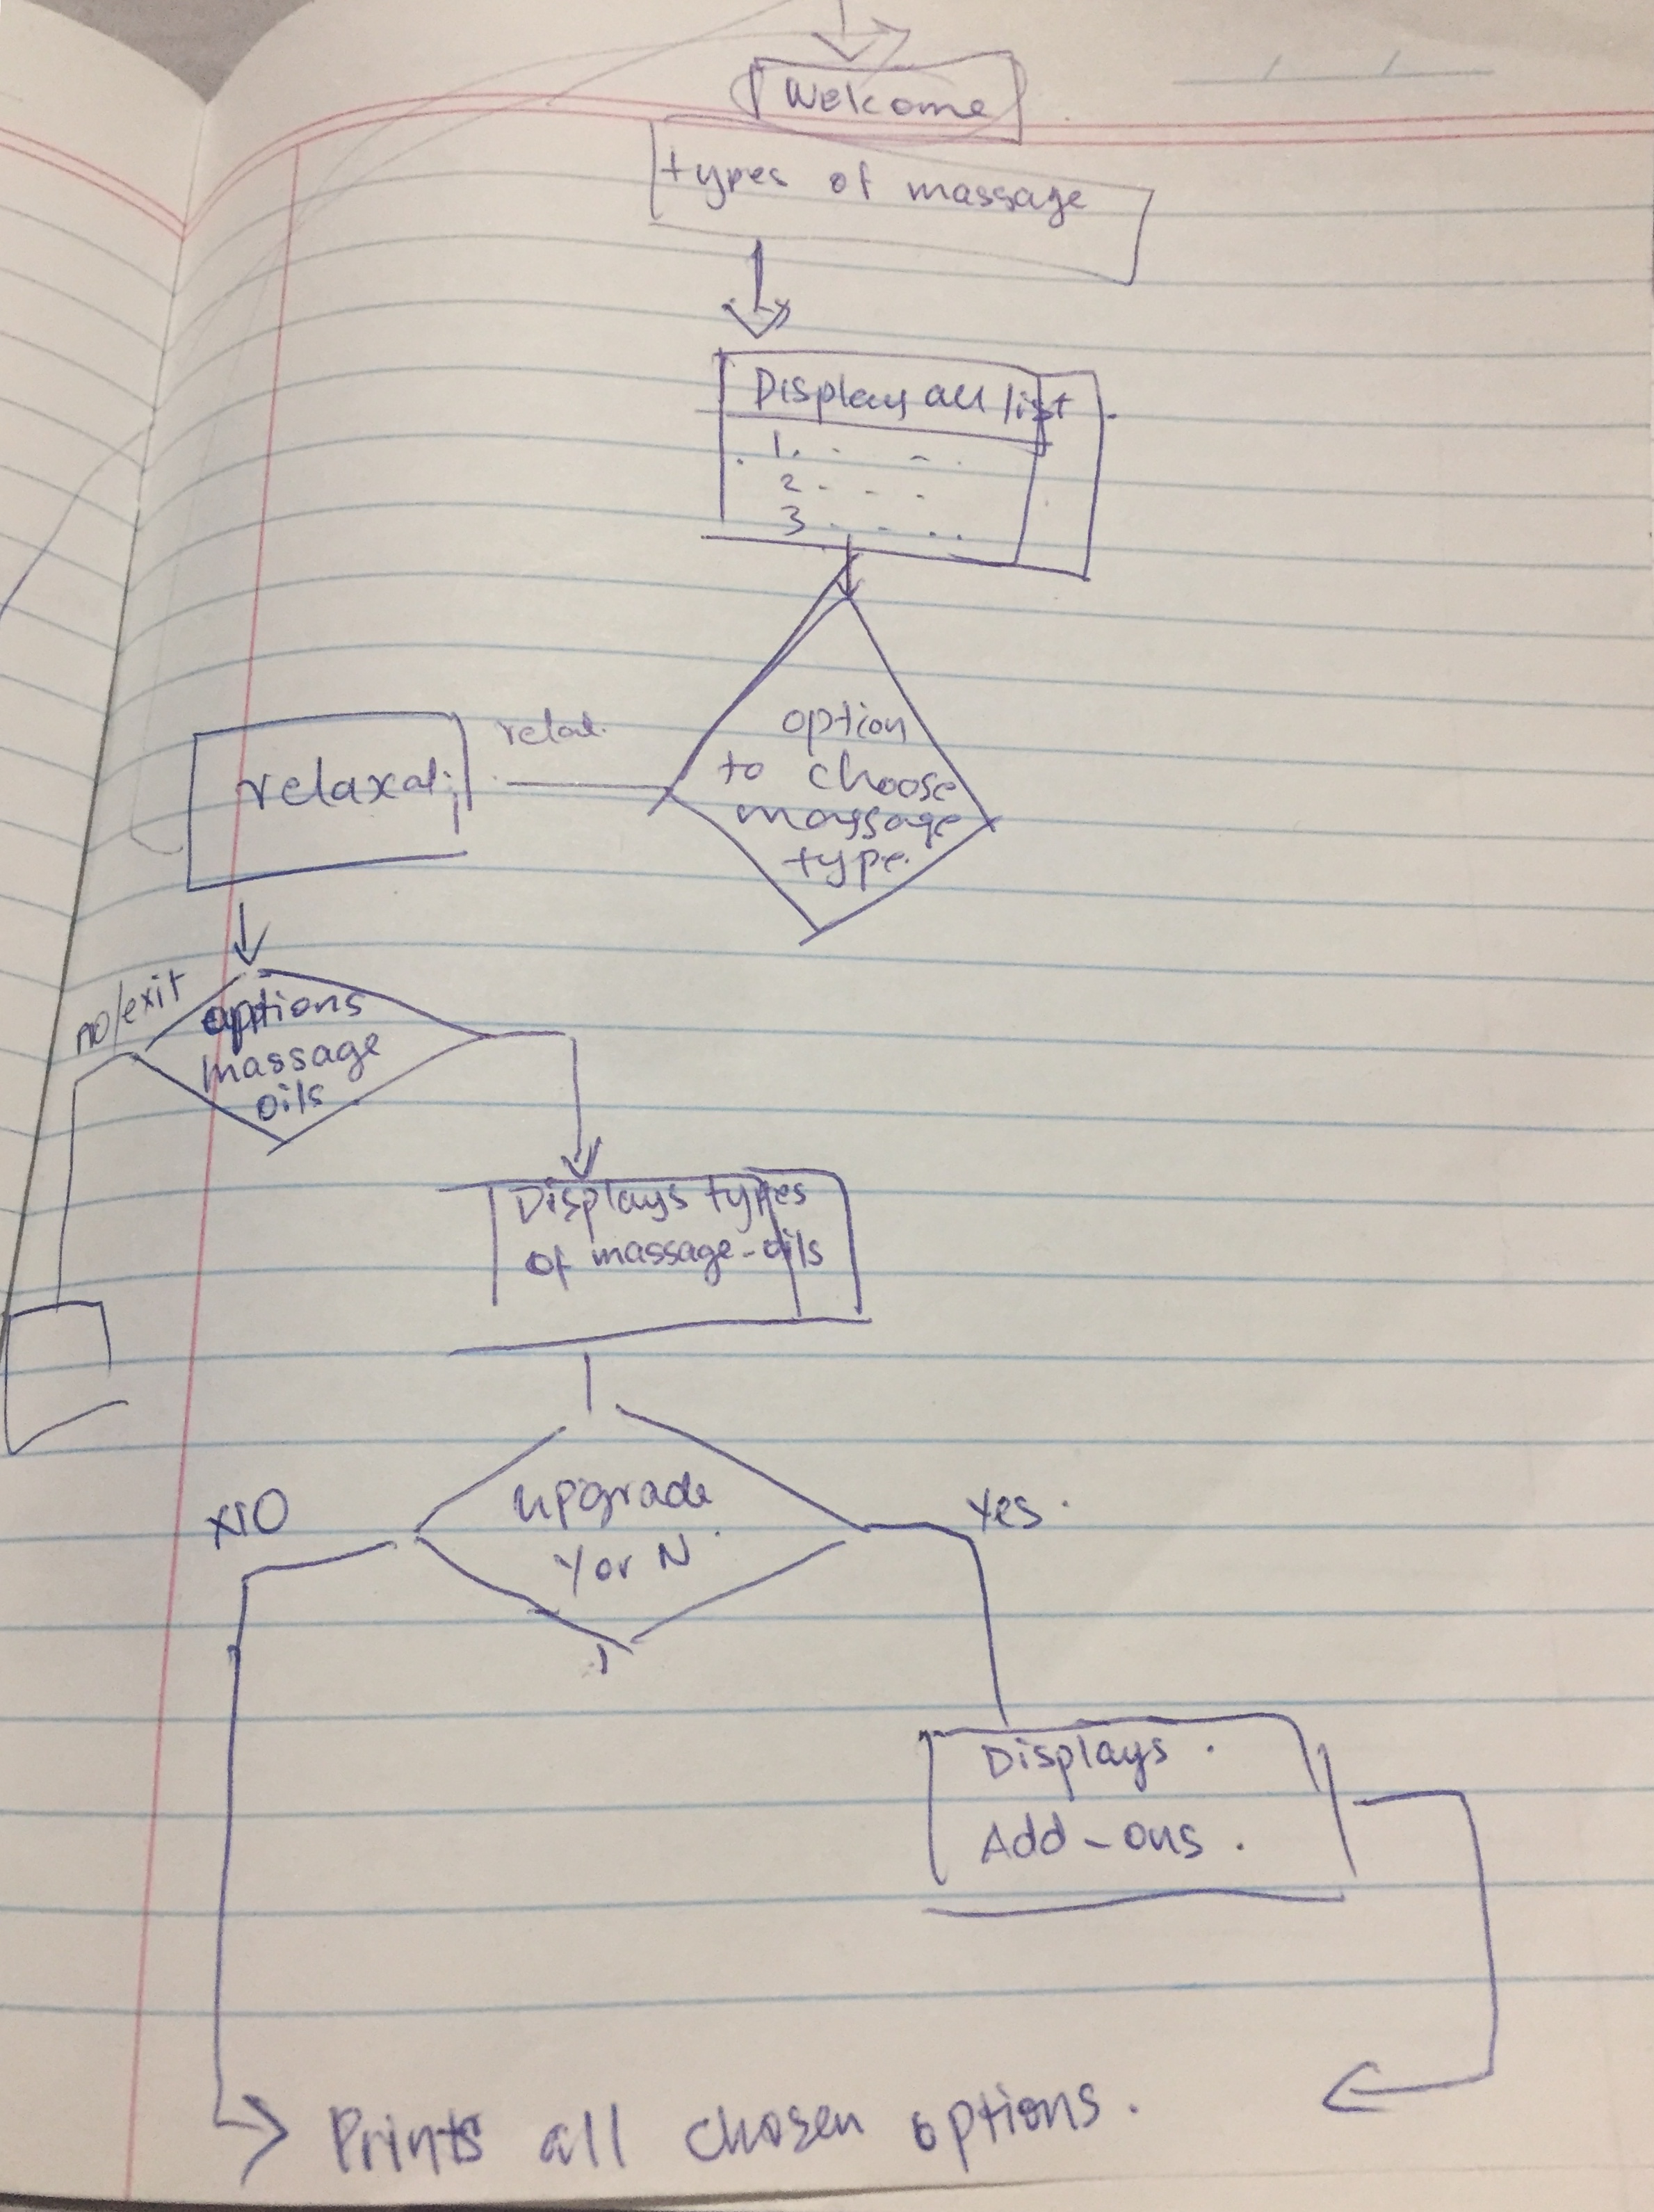 Welcome
types of massage
Displays all list
1.
2.
3
option
to choose
massage
type.
relaxati
no/exit
options
massage
oils
Displays types
of massage-oils
upgrade
Y or N
NO
Yes.
Displays
Add-ons.
Prints all chosen options.